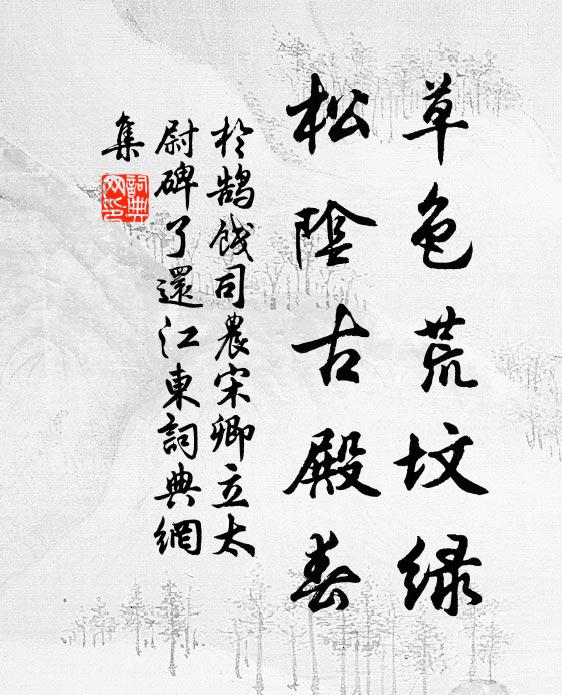 草色荒坟绿
松陰古殿春
於鵠餞司農宋卿立太
尉碑了還江東詞典網
集
詞典
网印